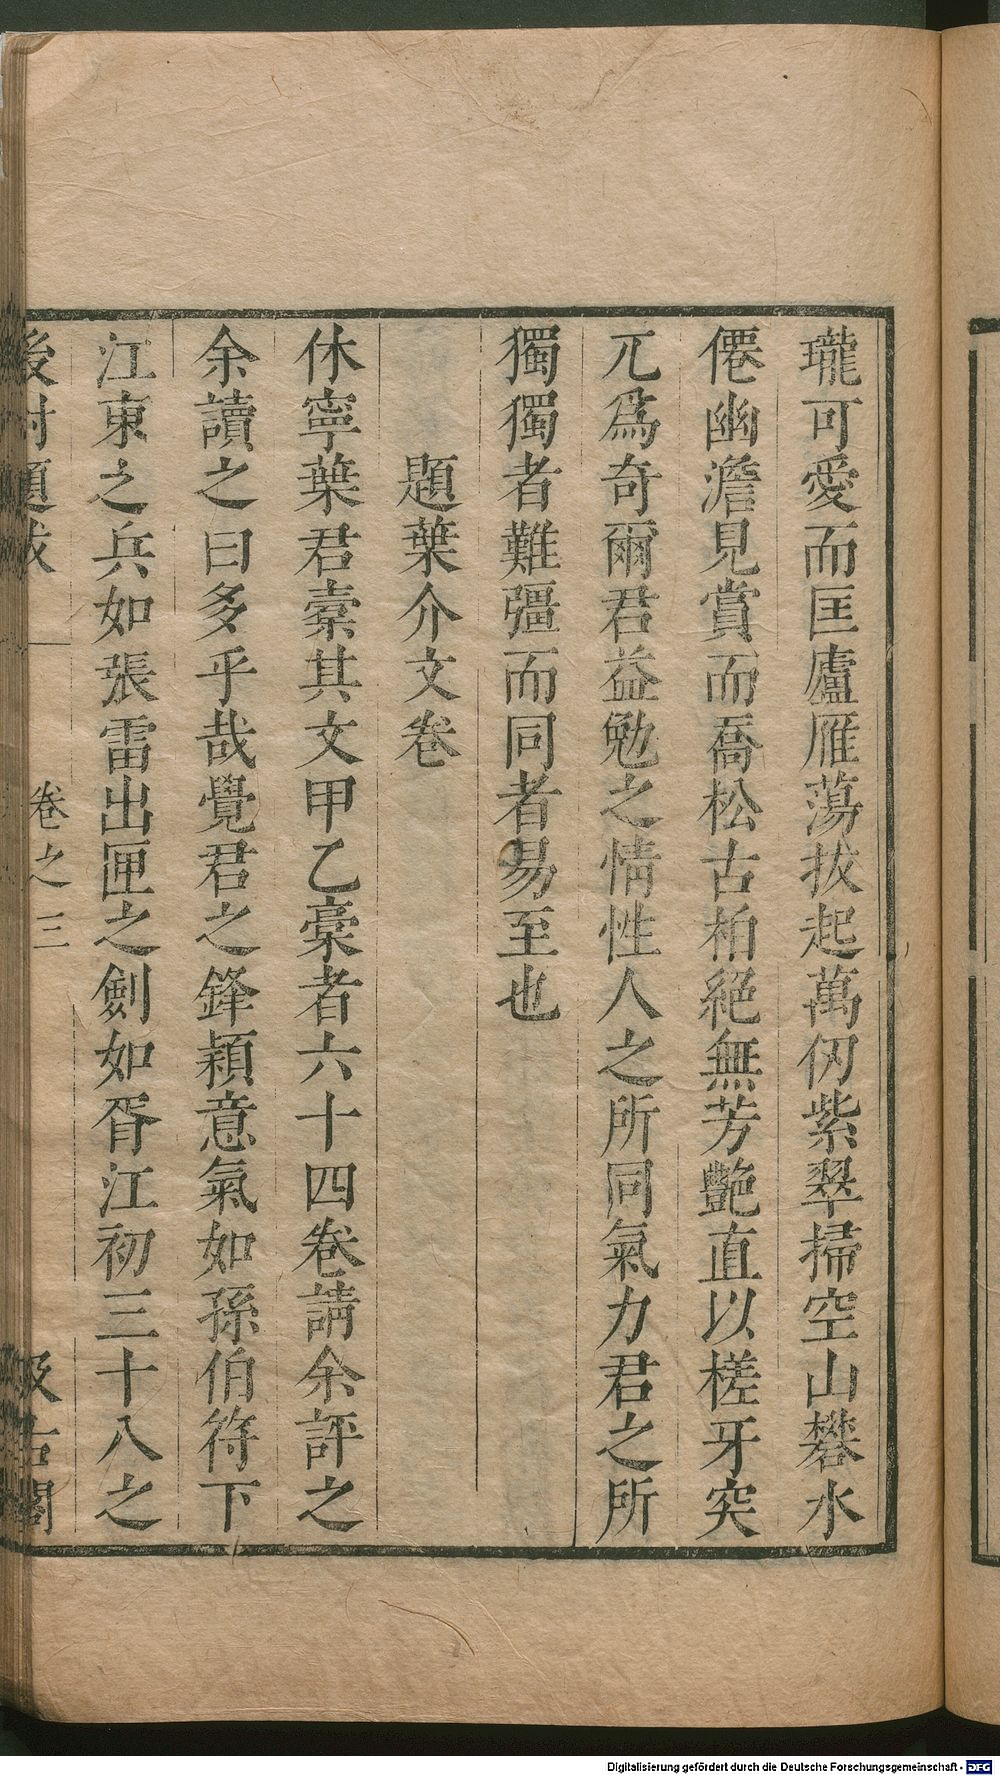 瓏可愛而匡廬雁蕩拔起萬仞紫翠掃空山礬水
僊幽澹見賞而喬松古柏絕無芳艷直以槎牙突
兀爲奇爾君益勉之情性人之所同氣力君之所
獨獨者難彊而同者易至也
題葉介文卷
休寧葉君橐其文甲乙稾者六十四卷請余評之
余讀之曰多乎哉覺君之鋒穎意氣如孫伯符下
江東之兵如張雷出匣之劍如胥江初三十八之
後村題跋 卷之三 汲古閣
Digitalisierung gefördert durch die Deutsche Forschungsgemeinschaft - DFG